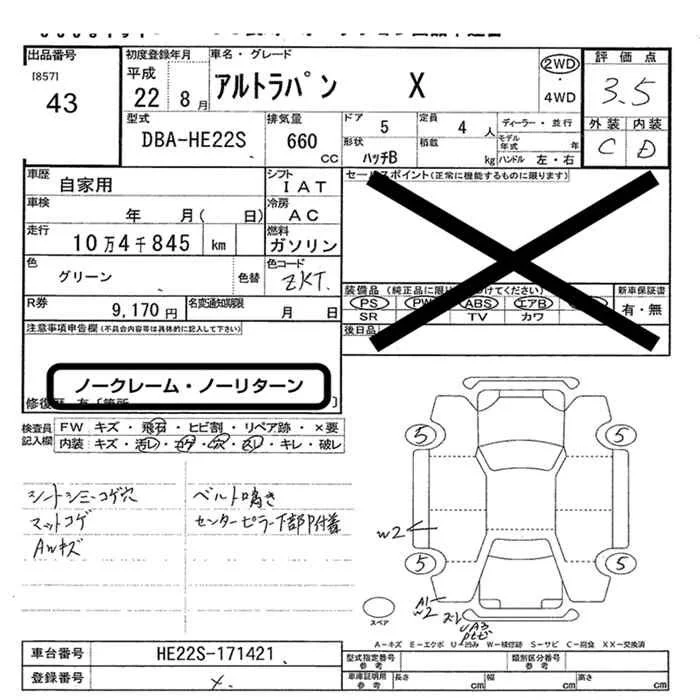 出品番号
[857]
43
初度登録年月
平成
22年 8月
車名・グレード
アルトラパン X
2WD
・
4WD
評価点
3.5
外装 内装
C D
型式
DBA-HE22S
排気量
660
CC
ドア
5
定員
4 人
ディーラー・並行
モデル年式 年
形状
ハッチB
積載
kg
ハンドル 左・右
車歴
自家用
シフト
IAT
セールスポイント(正常に機能するものに限ります)
車検
年 月( 日)
冷房
AC
走行
10万4千845 km
燃料
ガソリン
色
グリーン
色替
色コード
ZKT.
装備品(純正品に限り 付けてください)
PS PW ABS エアB
SR TV カワ
新車保証書
有・無
後日品
R券
9,170円
名変通知期限
月 日
注意事項申告欄(不具合内容等は具体的に記入して下さい)
ノークレーム・ノーリターン
検査員記入欄
FW キズ・飛石・ヒビ割・リペア跡・×要
内装 キズ・汚レ・コゲ・穴・スレ・キレ・破レ
シートシミ・コゲ穴
マットコゲ
AWキズ
ベルト鳴き
センターピラー下部P付着
5
5
5
5
W2
A1
W2
スペア
A3
A-キズ E-エクボ U-凹み W-補修跡 S-サビ C-腐食 XX-交換済
車台番号
HE22S-171421
登録番号
型式指定番号
参考
類別区分番号
参考
車庫証明用
参考
長さ cm 幅 cm 高さ cm